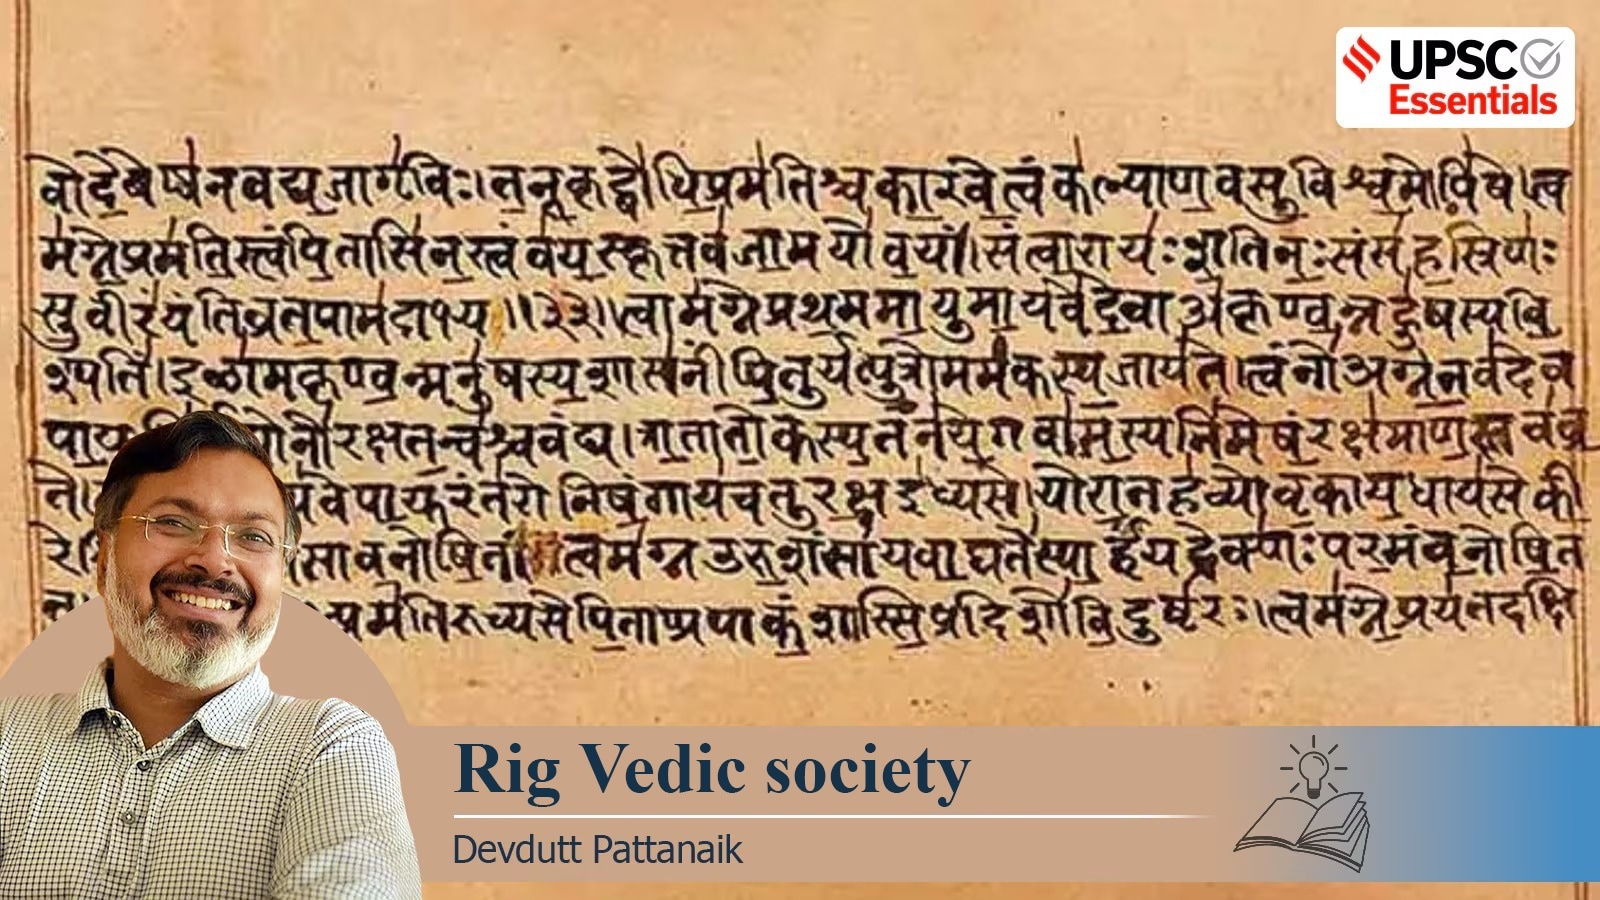 UPSC
Essentials
वोदेवेष्वनवद्यजागृविः।तनूकृद्बोधिप्रमतिश्चकारवेत्वंकल्याणवसुविश्वमोपिषे।त्व
मग्नेप्रमतिस्त्वंपितासिनस्त्वंवयस्कृत्तवजामयोवयं।संत्वारायःशतिनःसंसहस्रिणः
सुवीरंयंतिव्रतपामदाभ्य॥३३॥त्वामग्नेप्रथममायुमायवेदेवाअकृण्वन्नहुषस्यवि
श्पतिं।इळामकृण्वन्मनुषस्यशासनींपितुर्यत्पुत्रोममकस्यजायते।त्वंनोअग्नेतवदेव
पायु नोरक्षतन्वश्चवंद्य।त्रातातोकस्यतनयेगवामस्यनिमेषंरक्षमाणस्तवव्र
ते। यवेपायुरंतरोनिषंगायचतुरक्षइध्यसे।योरातहव्योवृकायधायसेकी
रे सावनोषितं।त्वमग्नउरुशंसायवाघतेस्पार्हंयद्रेक्णःपरमंवनोषित
प्रमतिरुच्यसेपिताप्रपाकंशास्सिप्रदिशोविदुष्टरः।त्वमग्नेप्रयतदक्षि
Rig Vedic society
Devdutt Pattanaik